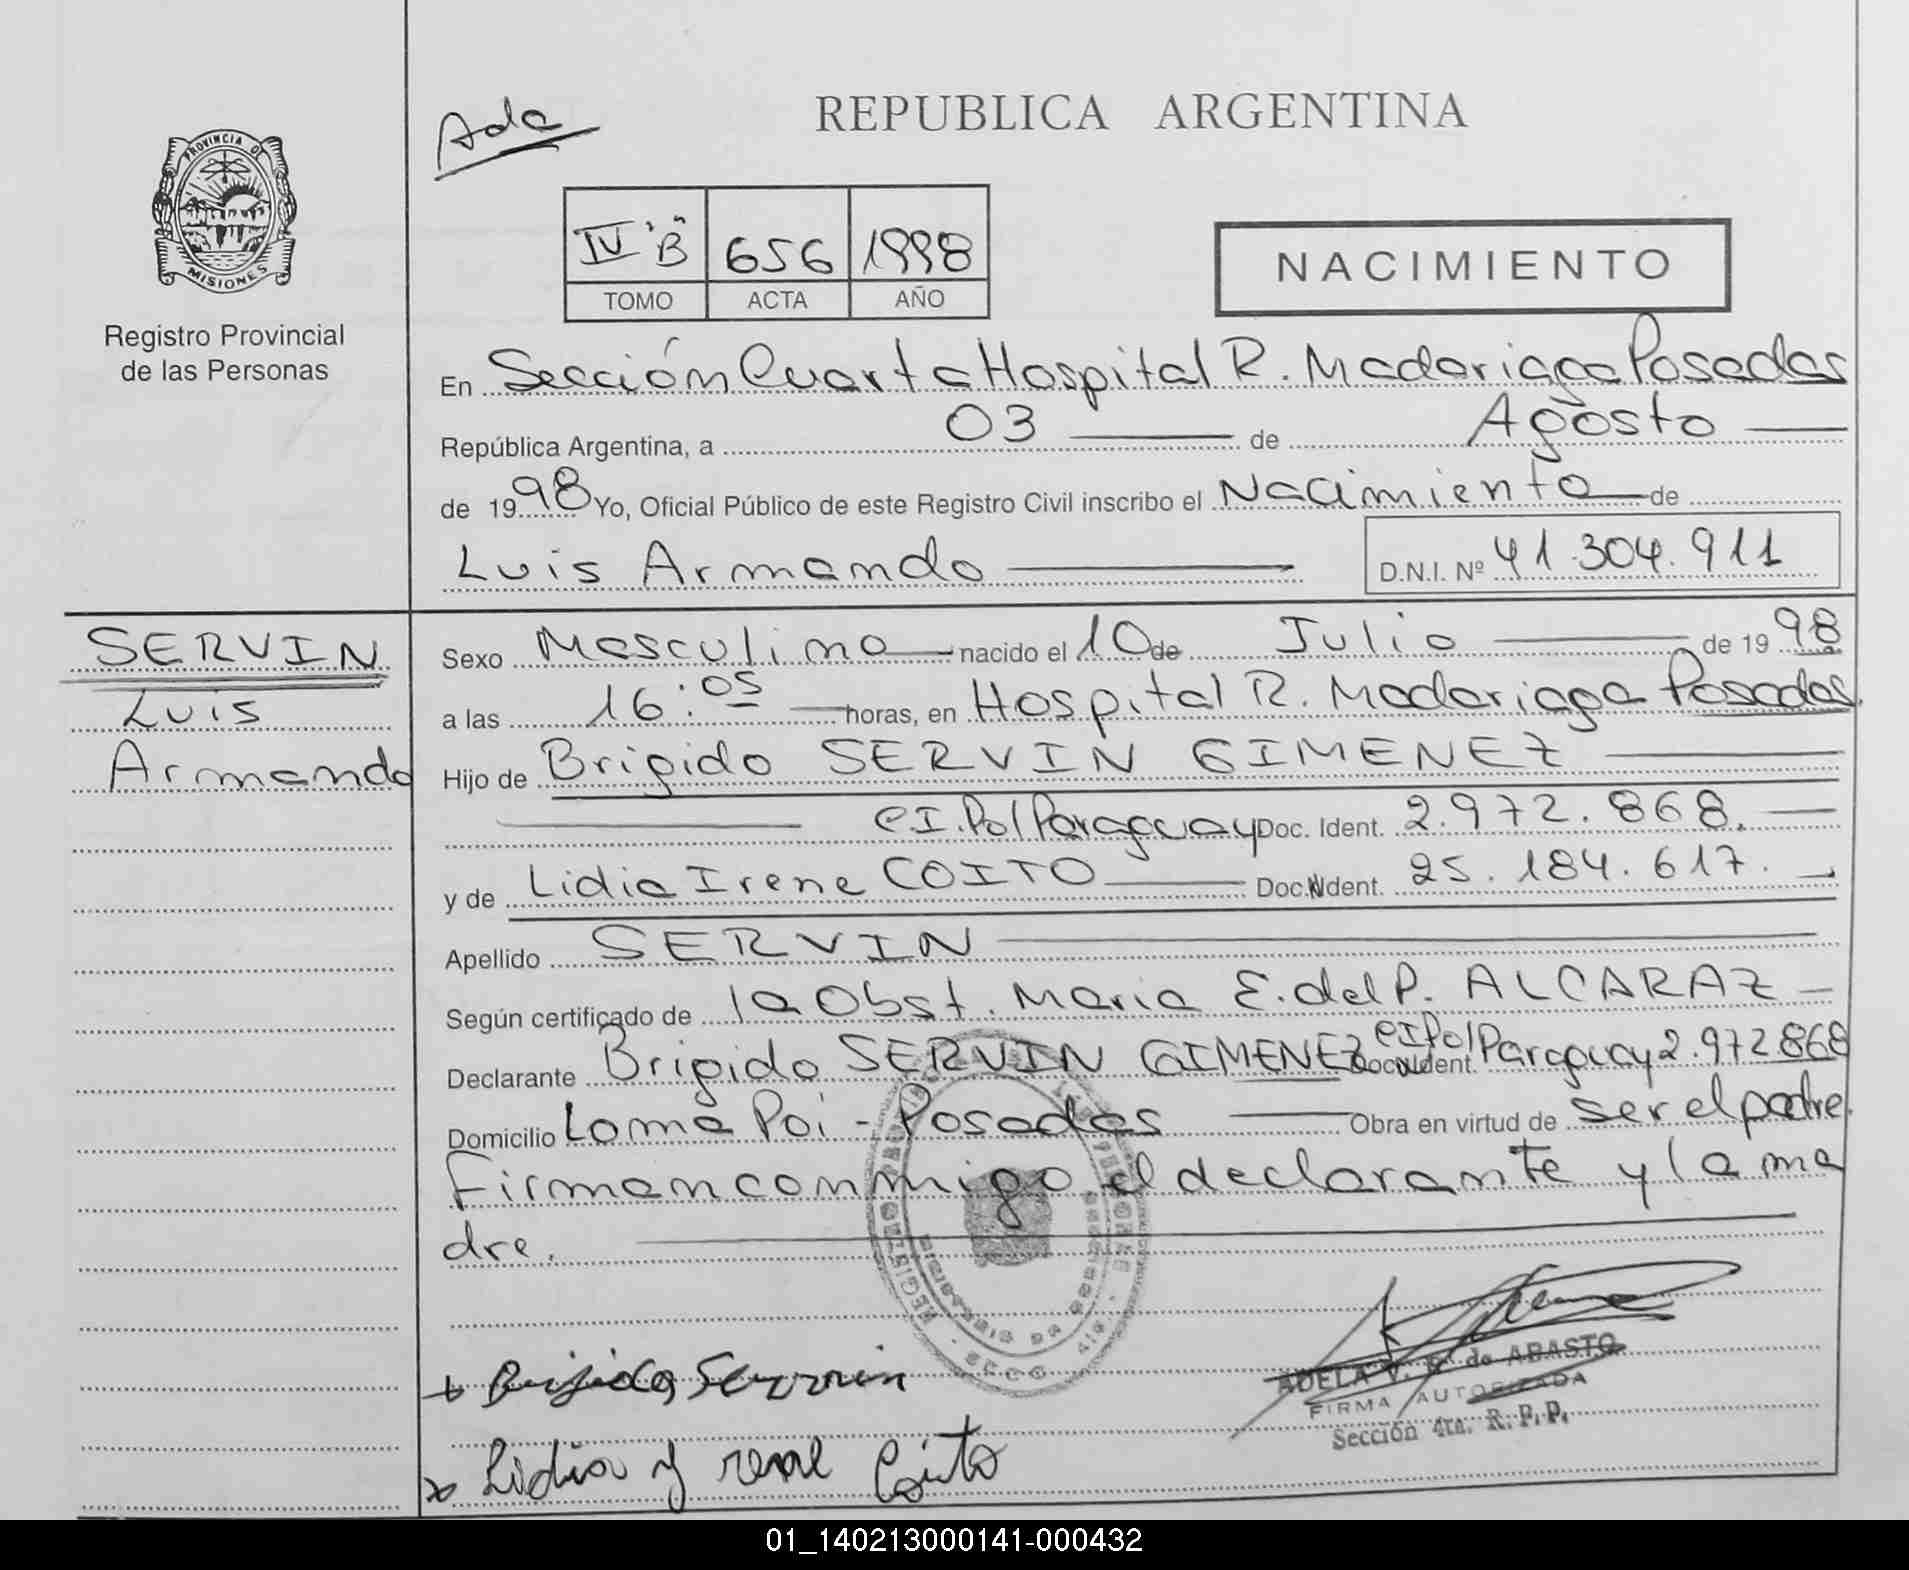 Ada
REPUBLICA ARGENTINA
PROVINCIA DE
MISIONES
Registro Provincial
de las Personas
IV "B" 656 1998
TOMO ACTA AÑO
NACIMIENTO
En Sección Cuarta Hospital R. Madariaga Posadas
República Argentina, a 03 de Agosto
de 1998 Yo, Oficial Público de este Registro Civil inscribo el Nacimiento de
Luis Armando D.N.I. Nº 41.304.911
SERVIN
Luis
Armando
Sexo Masculino nacido el 10 de Julio de 1998
a las 16:05 horas, en Hospital R. Madariaga Posadas.
Hijo de Brigido SERVIN GIMENEZ
CI.Pol Paraguay Doc. Ident. 2.972.868.
y de Lidia Irene COITO Doc. Ident. 25.184.617.
Apellido SERVIN
Según certificado de la Obst. Maria E. del P. ALCARAZ
Declarante Brigido SERVIN GIMENEZ Doc. Ident. CI Pol Paraguay 2.972868
Domicilio Loma Poi - Posadas Obra en virtud de ser el padre.
Firman conmigo el declarante y la ma
dre.
Brigido Servin
Lidia y rene Coito
ADELA V. de ABASTO
FIRMA AUTORIZADA
Sección 4ta. R.P.P.
01_140213000141-000432